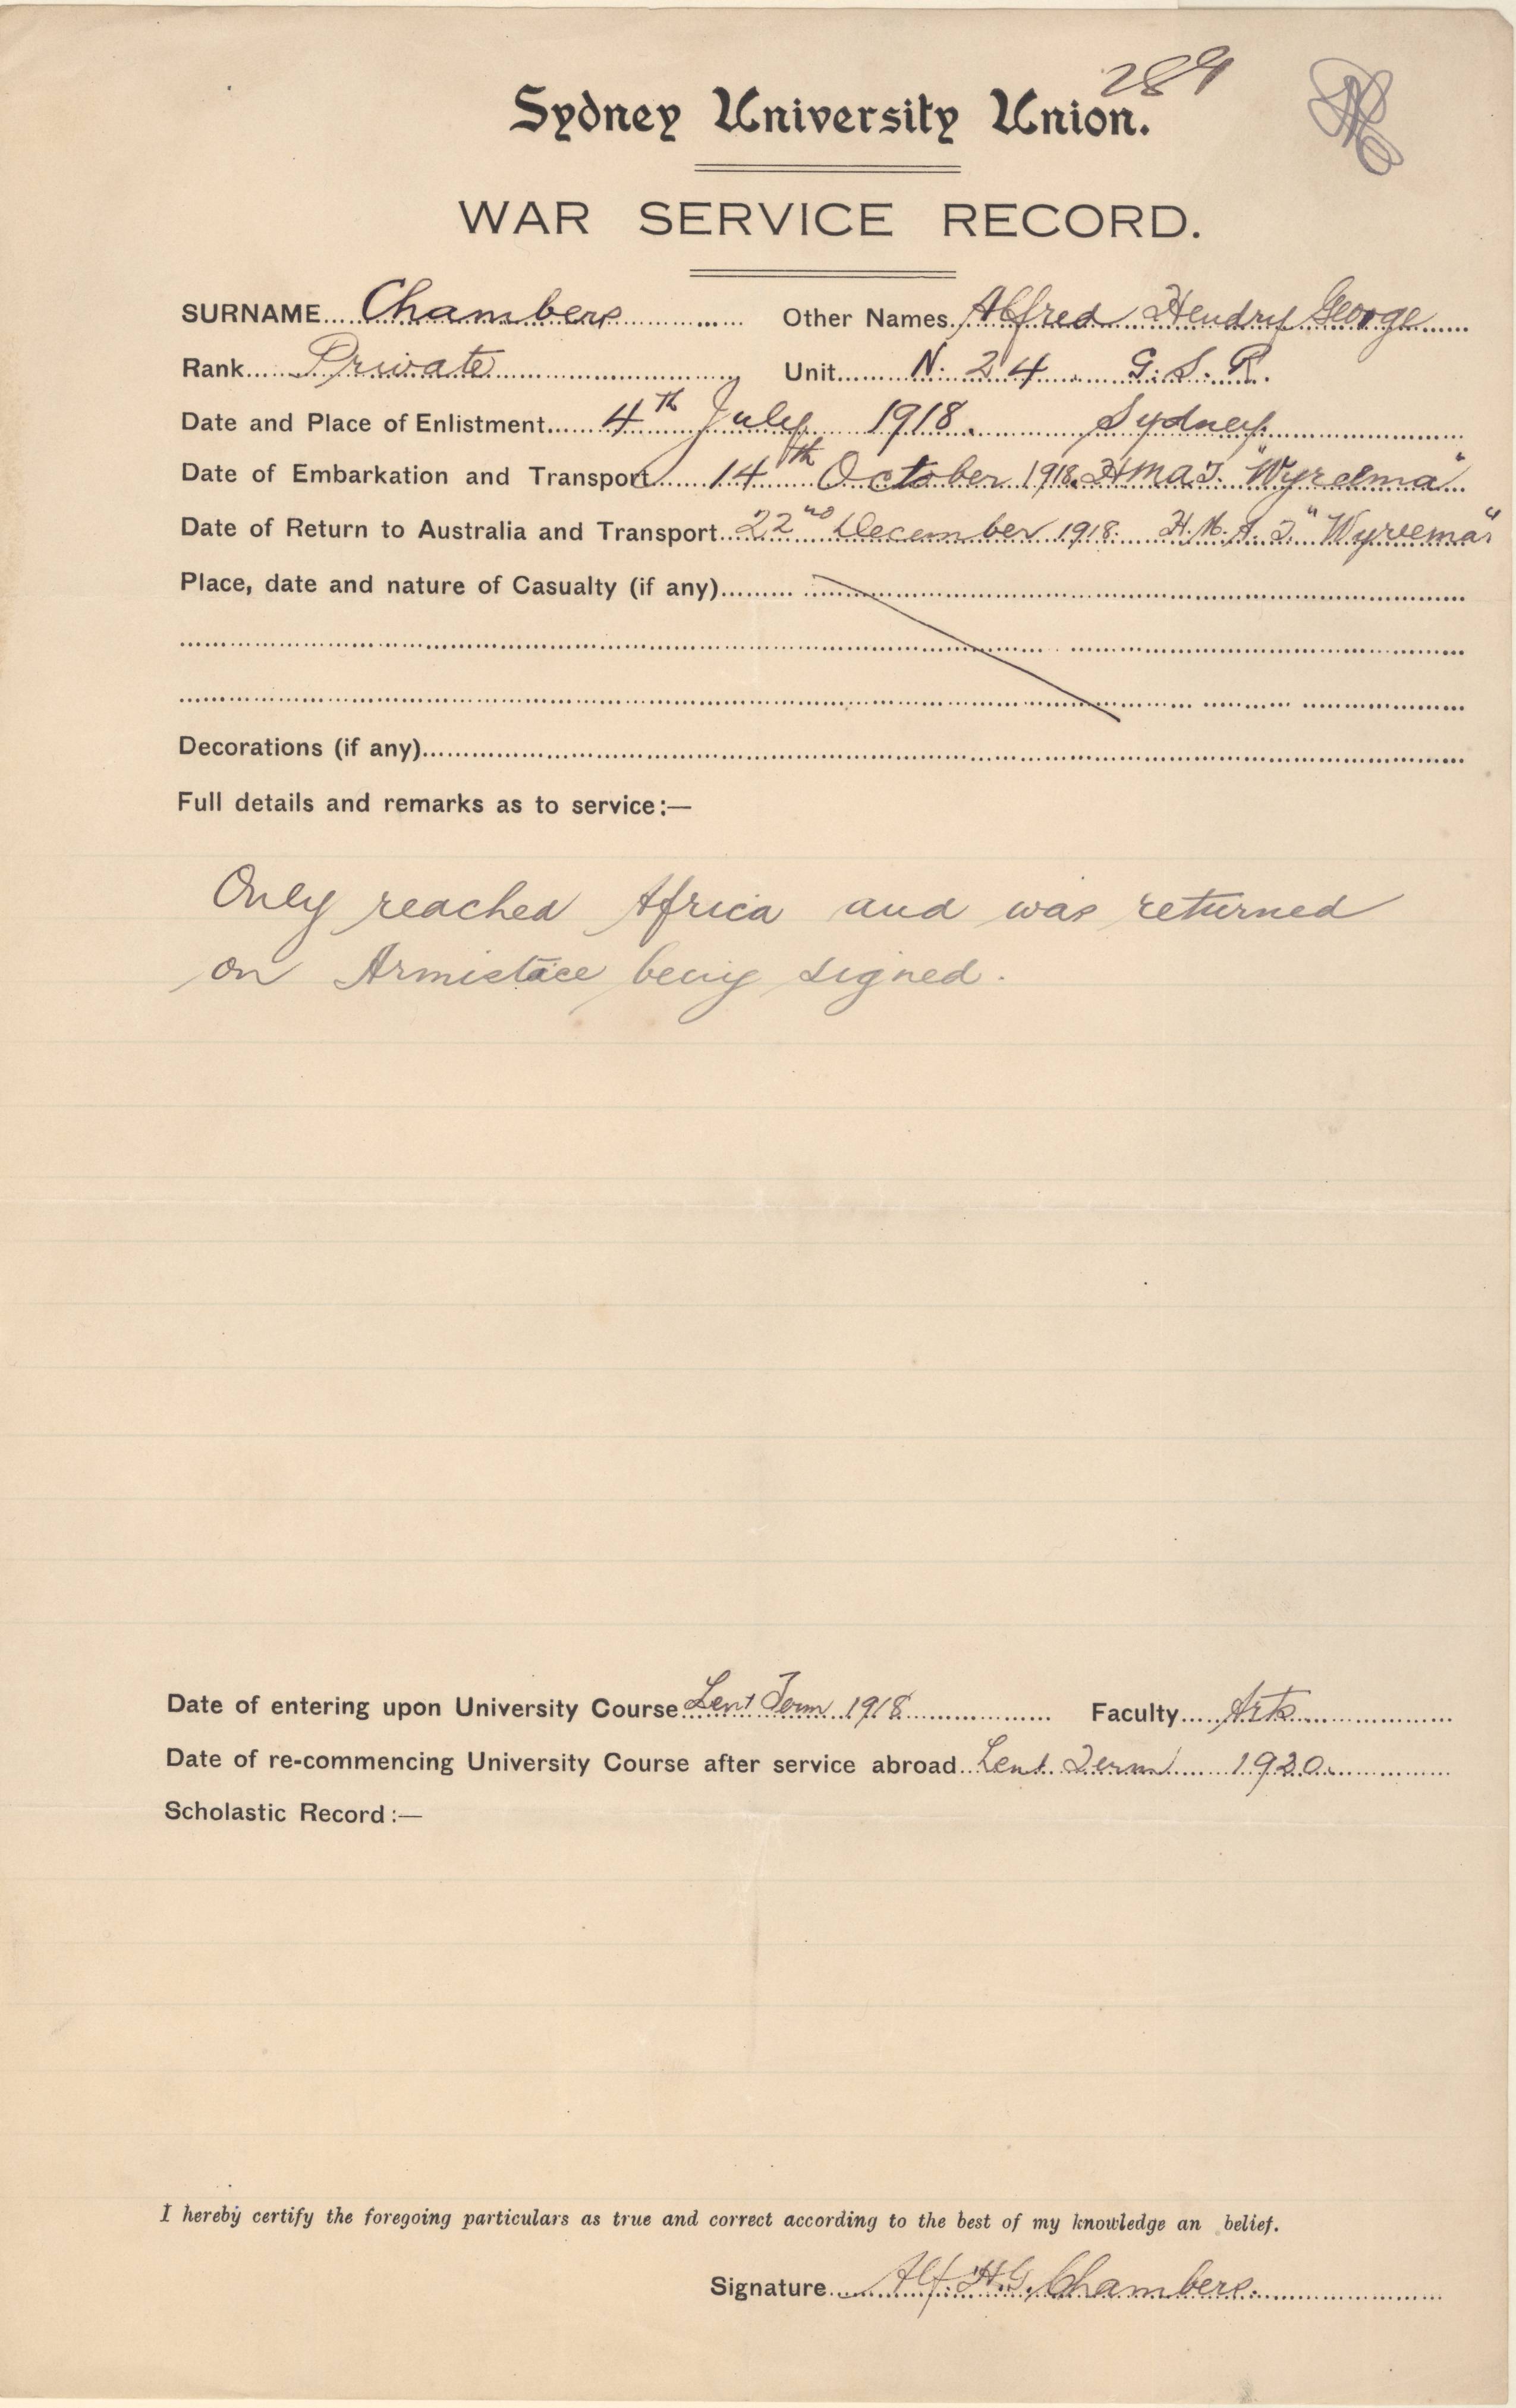 289
Sydney University Union.
WAR SERVICE RECORD.
SURNAME Chambers Other Names Alfred Hendry George
Rank Private Unit N. 24. G. S. R.
Date and Place of Enlistment 4th July 1918. Sydney.
Date of Embarkation and Transport 14th October 1918. HMAT. "Wyreema"
Date of Return to Australia and Transport 22nd December 1918. H.M.A.T. "Wyreema"
Place, date and nature of Casualty (if any)
Decorations (if any)
Full details and remarks as to service:—
Only reached Africa and was returned
on Armistice being signed.
Date of entering upon University Course Lent Term 1918 Faculty Arts
Date of re-commencing University Course after service abroad Lent Term 1920.
Scholastic Record:—
I hereby certify the foregoing particulars as true and correct according to the best of my knowledge an belief.
Signature Alf. H.G. Chambers.